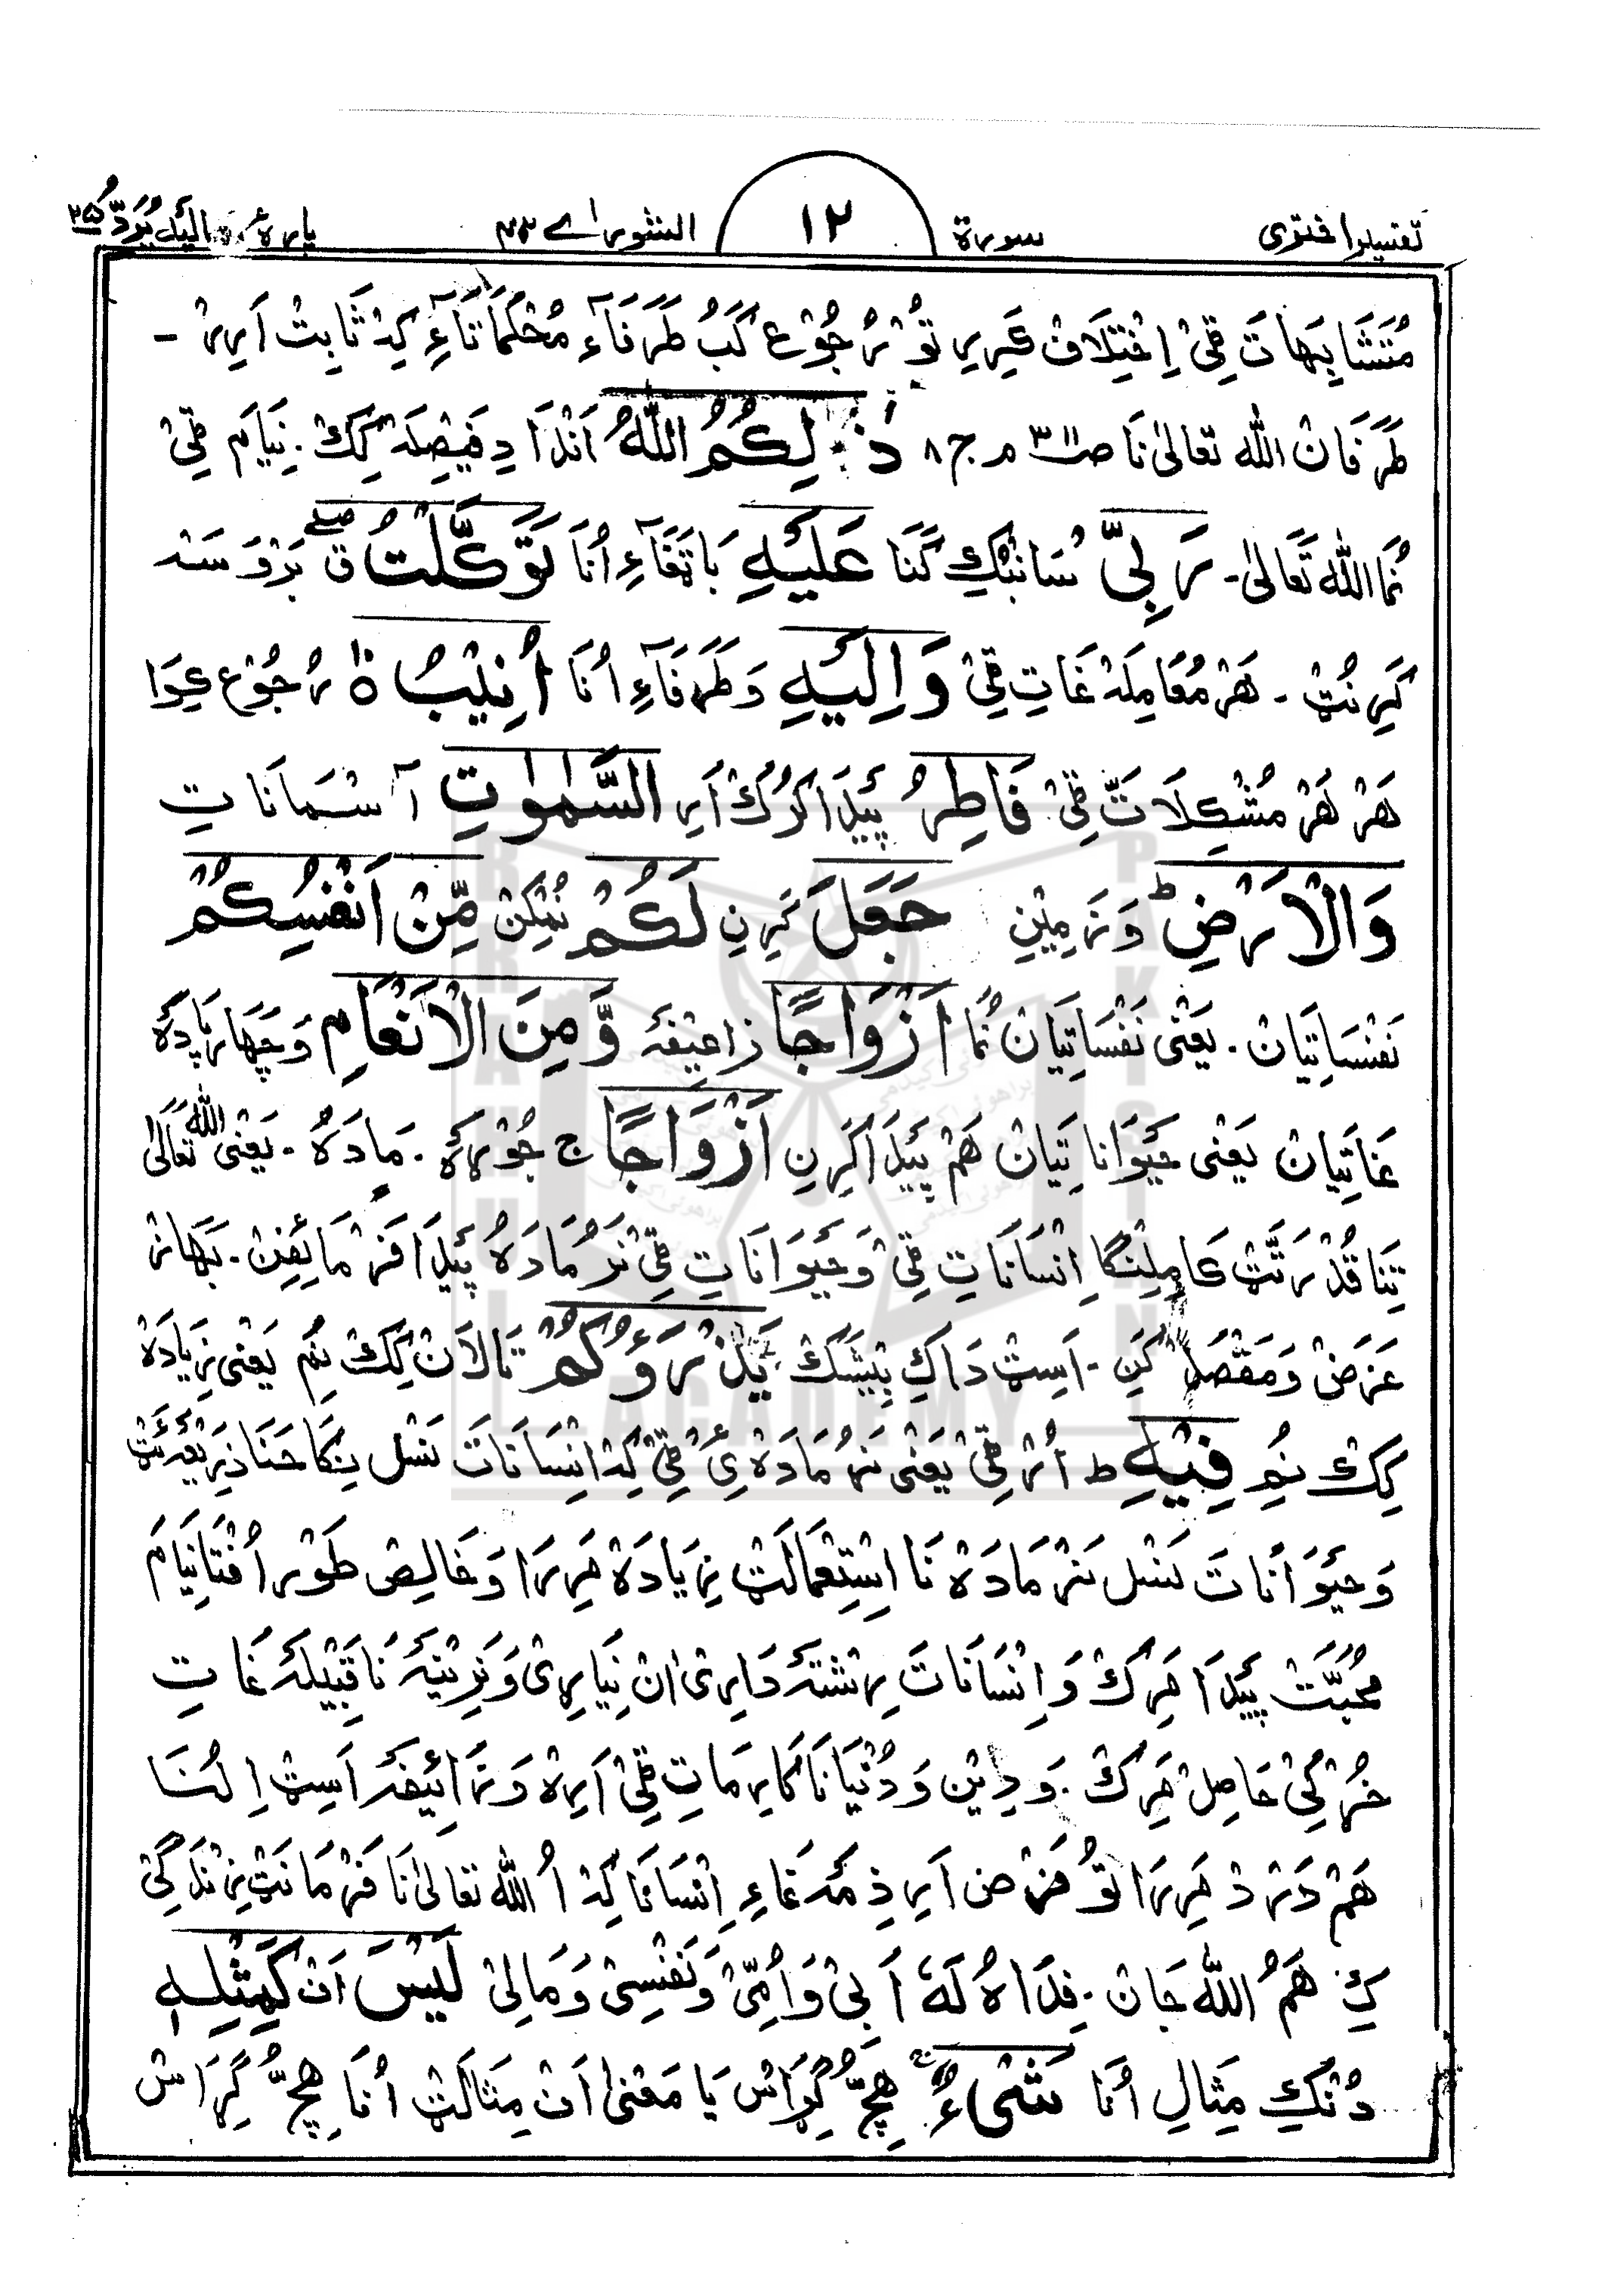 تفسیر اختری سورة ۱۲ الشورٰے ۴۲ پارہ إلیه یُرَدُّ ۲۵
مُتَشَابِهَاتَ ٹِیْ اِخْتِلَافْ عَرِیر تَوْ رُجُوْع کَبُ طَرَفَآءِ مُحْکَمَاتَآءِ کِہْ ثَابِتْ اَرِیرْ -
طَرَفَانْ اللّٰه تعالیٰ نَا ج۸ ذٰلِكُمُ اللّٰهُ اَنْدَا دِ فَیْصِلَہْ کِكْ. نِیَامْ ٹِیْ
نُمَا اللّٰه تَعَالیٰ - رَبِّیْ سَانْبُكِ کَنَا عَلَیْهِ بَاتَغَآءِ اُنَا تَوَكَّلْتُ
کَرِنُٹْ - هَرْ مُعَامِلَہْ غَاتِ ٹِیْ وَاِلَیْهِ وَ طَرَفَآءِ اُنَا اُنِیْبُ رُجُوْع عِوَا
هَرْ هَرْ مُشْکِلَاتَ ٹِیْ فَاطِرُ پَیْدَا کَرُكْ اَرِ السَّمٰوٰتِ آسْمَانَاتِ
وَالْاَرْضِ ط وَ زَمِیْنِ جَعَلَ کَرِنِ لَكُمْ نُمْكِنْ مِّنْ اَنْفُسِكُمْ
نَفْسَاتِیَانْ. یَعْنی نَفْسَاتِیَانْ نُمَا اَزْوَاجًا زَاعِیْفَہ وَّمِنَ الْاَنْعَامِ وَ چَهَار پَادَہْ
غَاتِیَانْ یَعْنی حَیْوَانَاتِیَانْ هَمْ پَیْدَا کَرِنِ اَزْوَاجًا ج جُوْرَہْ. مَادَہْ. یَعْنی اللّٰه تَعَالیٰ
تِنَا قُدْرَتَٹْ کَامِلِنْگَا اِنْسَانَاتِ ٹِیْ وَ حَیْوَانَاتِ ٹِیْ نَرْ مَادَہْ پَیْدَا فَرْمَائِفِنْ. بَهَازْ
غَرَضْ وَ مَقْصَدْ کَنِ - اَسِٹْ دَاكِ بِیْشَكْ یَذْرَؤُكُمْ تَالَانْ کِكْ نُمِ یَعْنی زِیَادَہْ
کِكْ نُمِ فِیْهِ ط اُرْ ٹِیْ یَعْنی نَرْ مَادَہْ یْ ٹِیْ کِہْ اِنْسَانَاتَ نَسْل نِکَاحَنَا ذَرِیْعَہْ ئَٹْ
وَ حَیْوَانَاتَ نَسْل نَرْ مَادَہْ نَا اِسْتِعْمَالَٹْ زِیَادَہْ مَرِرَا وَ خَالِصْ طَوْر اُفْتَا نِیَامْ
مُحَبَّتْ پَیْدَا مَرِكْ وَ اِنْسَانَاتَ رِشْتَہ دَارِیْ اَنْ نِیَارِیْ وَ نَرِیْنَہ نَا قَبِیْلَہ غَاتِ
حَاصِلْ مَرِكْ. وَ دِیْن وَ دُنْیَا نَا کَارِمَاتِ ٹِیْ اَرِیْہْ وَ زَائِیْفَہ اَسِٹْ اِلُنَا
هَمْ دَرْدْ مَرِرَا تَوْ فَرْض اَرِ ذِمَّہ غَاءِ اِنْسَانَا کِہْ اُ اللّٰه تعالیٰ نَا فَرْمَانَٹْ زِنْدَگِیْ
كِ هَمُ اللّٰه جَانْ. فِدَاهُ لَهٗ اَبِیْ وَ اُمِّیْ وَ نَفْسِیْ وَ مَالِیْ لَیْسَ اَفْ كَمِثْلِهٖ
دُنْكِ مِثَالِ اُنَا شَیْءٌ هِچُّ گِرَاسْ یَا مَعْنیٰ اَفْ مِثَالَٹْ اُنَا هِچُّ گِرَاسْ